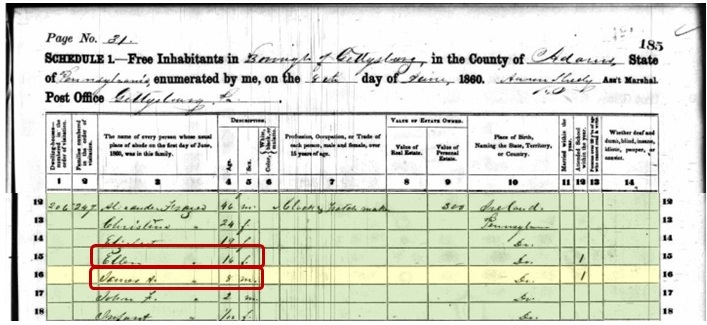 185
Page No. 31.
SCHEDULE 1.—Free Inhabitants in Borough of Gettysburg, in the County of Adams State
of Pennsylvania enumerated by me, on the 8th day of June, 1860. Ass't Marshal.
Post Office Gettysburg Pa.
Dwelling-houses—numbered in the order of visitation.
Families numbered in the order of visitation.
The name of every person whose usual place of abode on the first day of June, 1860, was in this family.
DESCRIPTION.
Age.
Sex.
White, black, or mulatto.
Color,
Profession, Occupation, or Trade of each person, male and female, over 15 years of age.
VALUE OF ESTATE OWNED.
Value of Real Estate.
Value of Personal Estate.
Place of Birth, Naming the State, Territory, or Country.
Married within the year.
Attended School within the year.
Whether deaf and dumb, blind, insane, idiotic, pauper, or convict.
1 2 3 4 5 6 7 8 9 10 11 12 13 14
12 206 Alexander Frazer 46 m Clock & Watch maker 300 Ireland 12
13 Christina " 24 f Pennsylvan 13
14 f Do. 14
15 Ellen " 16 f. Do. 1 15
16 James A. " 8 m. Do. 1 16
17 John F. " 2 m. Do. 17
18 Infant " f Do. 18